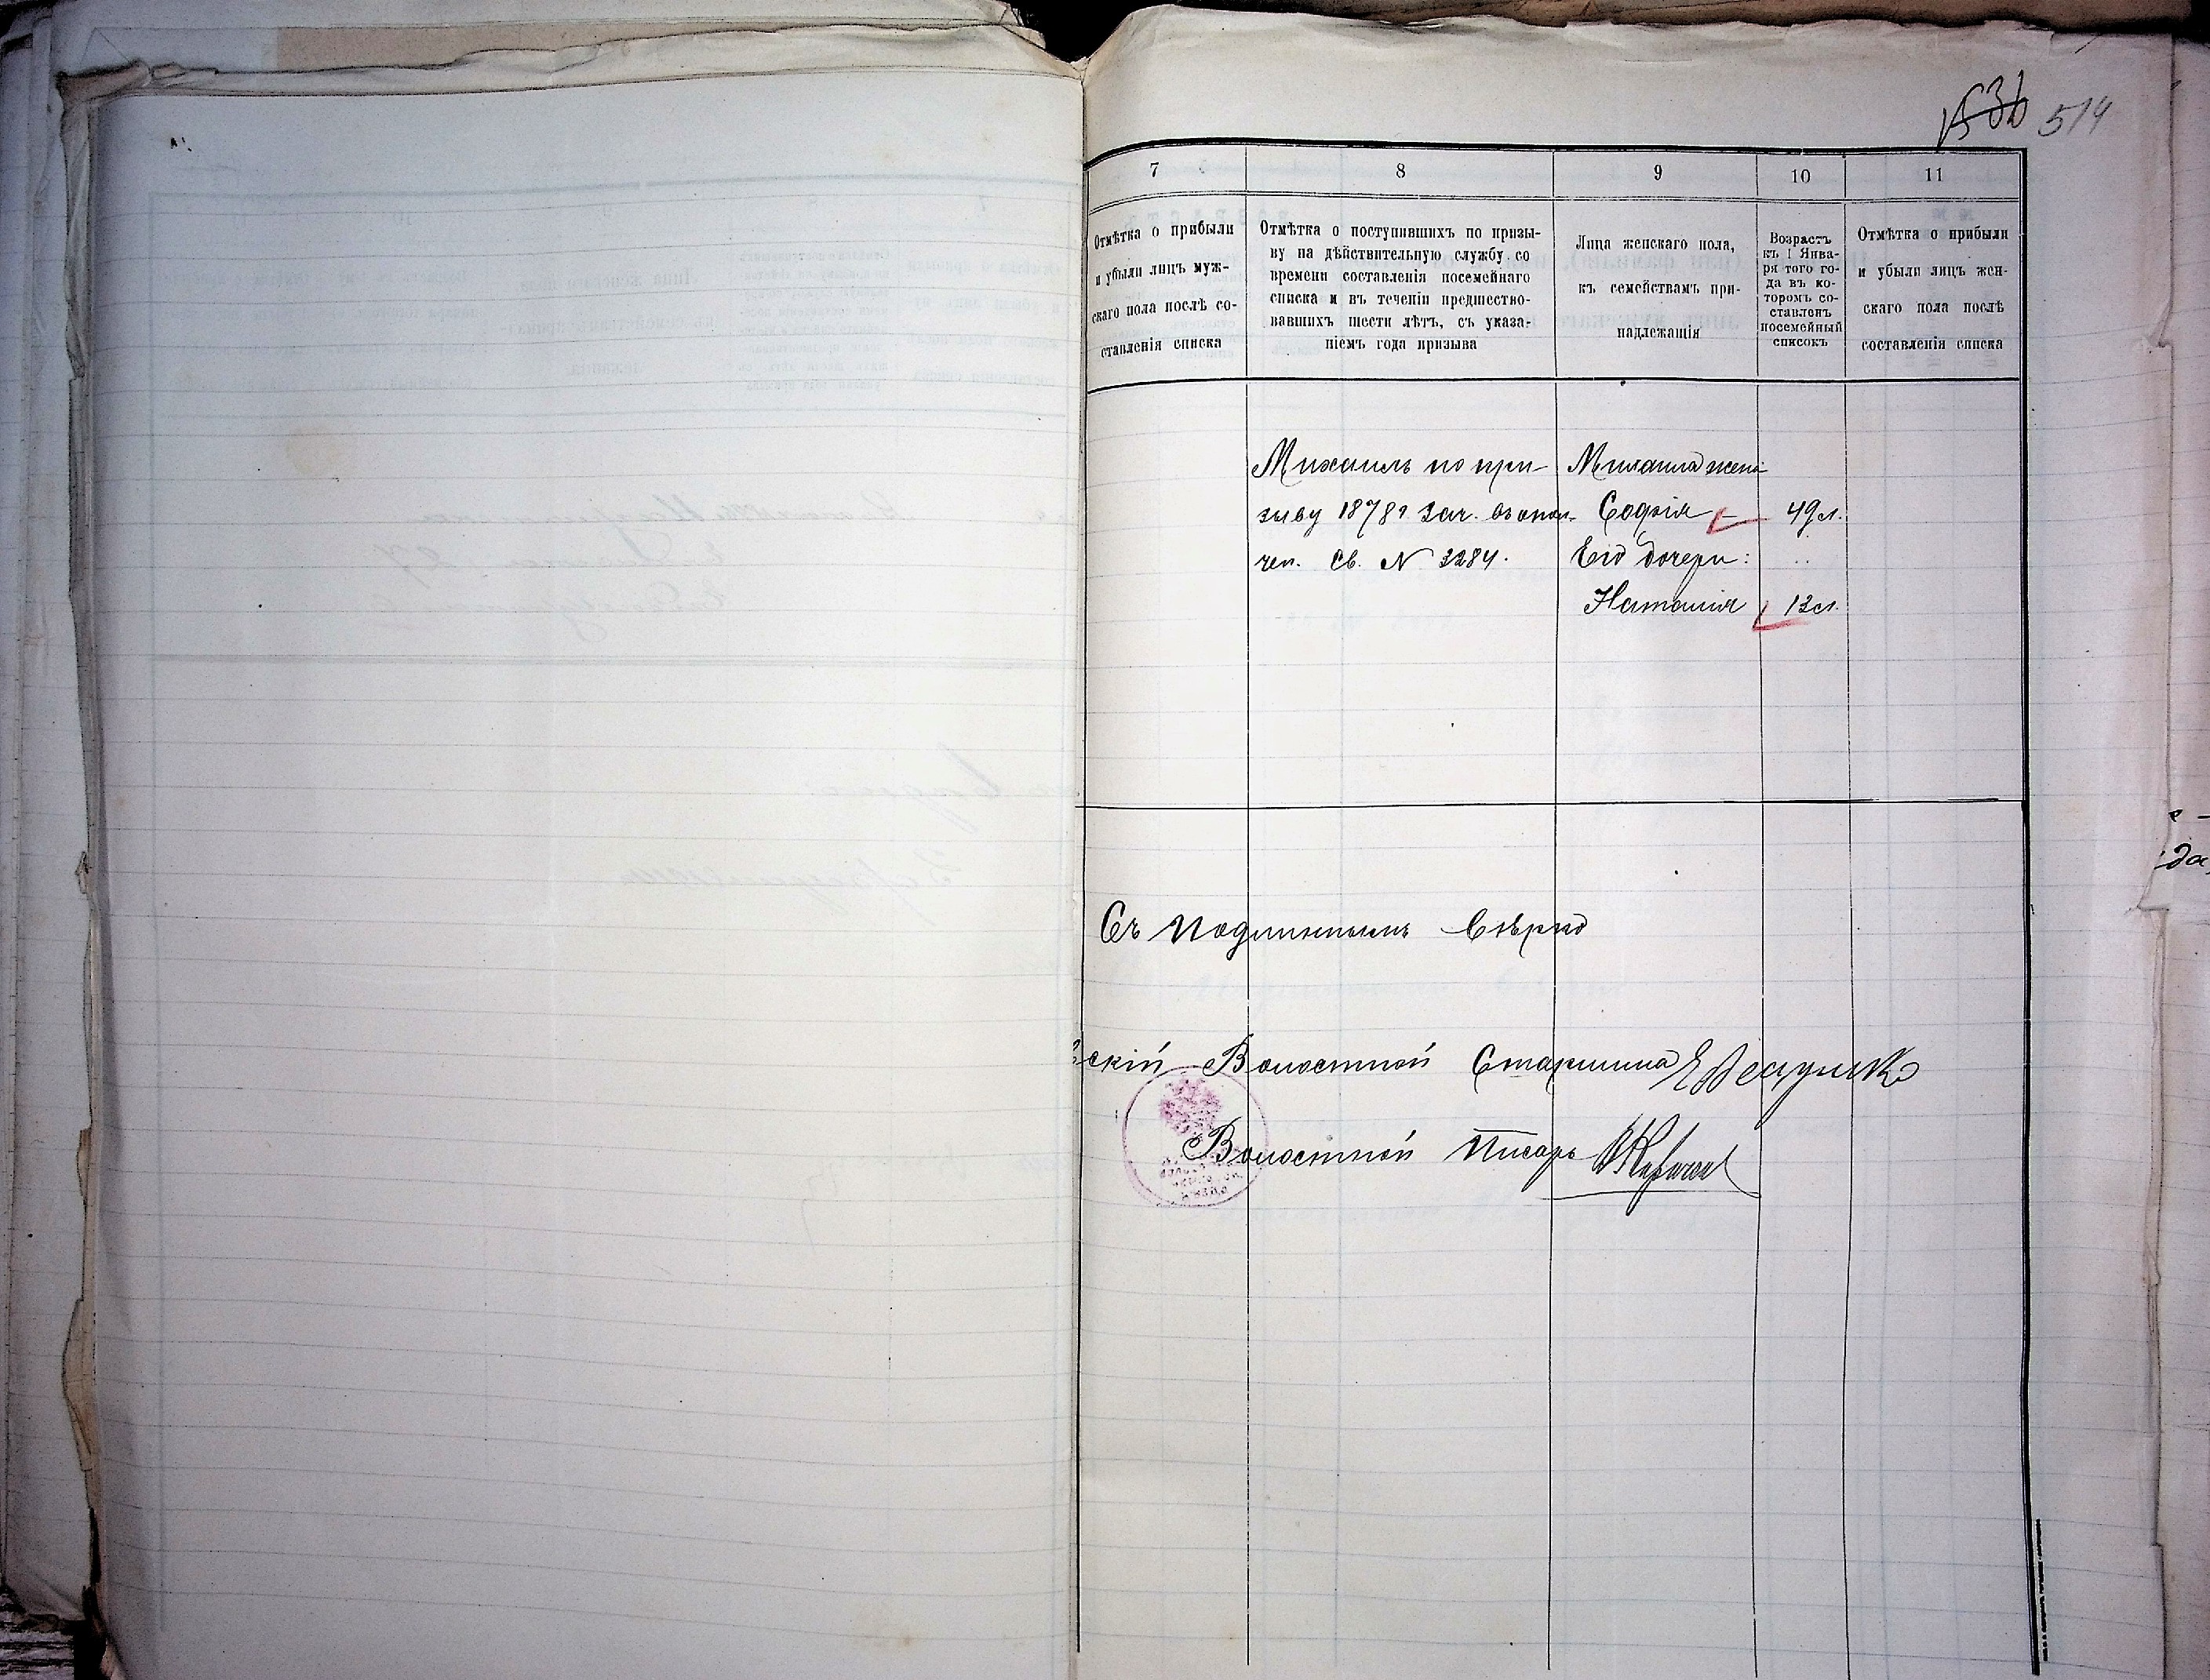 514
7 8 9 10 11
Отмѣтка о прибыли
и убыли лицъ муж-
скаго пола послѣ со-
ставленія списка
Отмѣтка о поступившихъ по призы-
ву на дѣйствительную службу со
времени составленія посемейнаго
списка и въ теченіи предшество-
вавшихъ шести лѣтъ, съ указа-
ніемъ года призыва
Лица женскаго пола,
къ семействамъ при-
надлежащія
Возрастъ
къ 1 Янва-
ря того го-
да въ ко-
торомъ со-
ставленъ
посемейный
списокъ
Отмѣтка о прибыли
и убыли лицъ жен-
скаго пола послѣ
составленія списка
Михаилъ по при-
зыву 1878 г. зач. въ опол-
чен. Св. № 3284.
жена
Софія 49 л.
Его дочери:
Наталия 13 л.
Съ подлиннымъ вѣрно
скій Волостной Старшина
Волостной Писарь